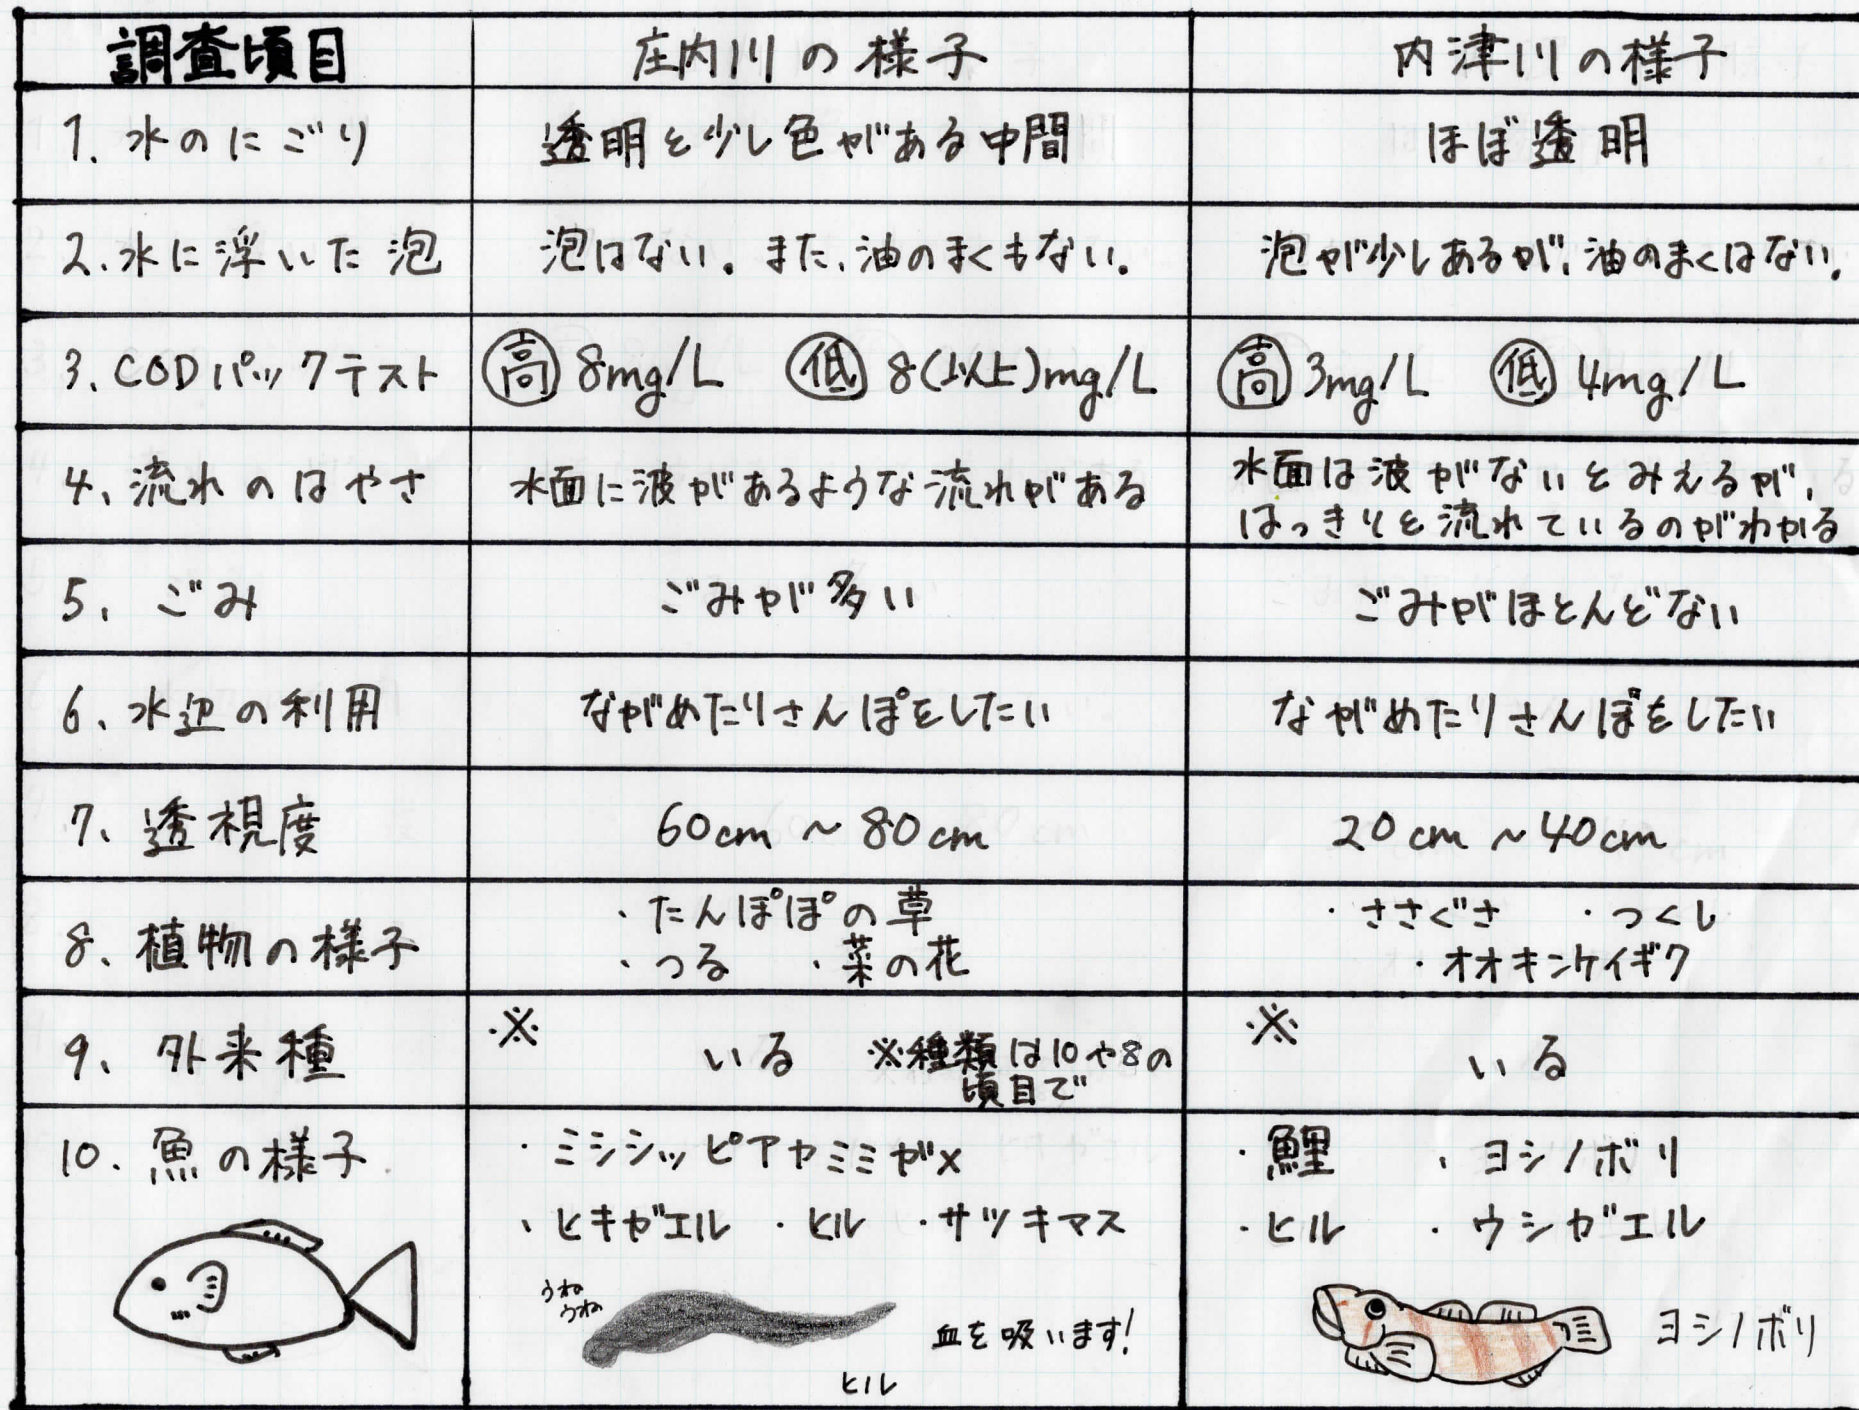 調査頃目 庄内川の様子 内津川の様子
1. 水のにごり 透明と少し色がある中間 ほぼ透明
2. 水に浮いた泡 泡はない。また、油のまくもない。 泡が少しあるが、油のまくはない。
3. CODパックテスト 高 8mg/L 低 8(以上)mg/L 高 3mg/L 低 4mg/L
4、流れのはやさ 水面に波があるような流れがある 水面は波がないとみえるが、
はっきりと流れているのがわかる
5、ごみ ごみが多い ごみがほとんどない
6、水辺の利用 ながめたりさんぽをしたい ながめたりさんぽをしたい
7、透視度 60cm〜80cm 20cm〜40cm
8、植物の様子 ・たんぽぽの草
・つる ・菜の花
・ささぐさ ・つくし
・オオキンケイギク
9、外来種 ※ いる ※種類は10や8の
頃目で
※ いる
10. 魚の様子
・ミシシッピアカミミガメ
・ヒキガエル ・ヒル ・サツキマス
うね
うね
血を吸います!
ヒル
・鯉 ・ヨシノボリ
・ヒル ・ウシガエル
ヨシノボリ